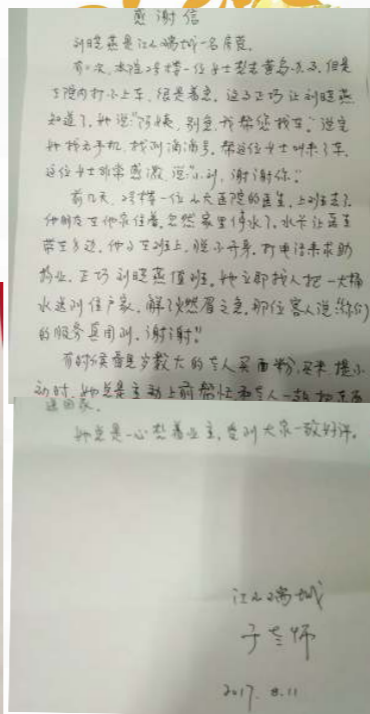 感谢信
刘晓燕是江山瑞城一名房管。
有一次,本院2号楼一位女士想去黄岛,但是
在院内打不上车,很是着急。这事正巧让刘晓燕
知道了,她说:“阿姨,别急,我帮您找车。”说完
她找出手机,找到滴滴号,帮这位女士叫来了车,
这位女士非常感激,说“小刘,谢谢你!”
前几天,2号楼一位人大医院的医生,上班走了
他朋友在他家住着,忽然家里停水了,水卡让医生
带在身边,他又在班上,脱不开身,打电话来求助
物业,正巧刘晓燕值班,她立即找人把一大桶
水送到住户家,解了燃眉之急,那位客人说:“你们
的服务真周到,谢谢!”
有时候看见岁数大的老人买面粉,买米,提不
动时,她总是主动上前帮忙和老人一起把东西
送回家。
她总是一心想着业主,受到大家一致好评。
江山瑞城
于老师
2017.8.11